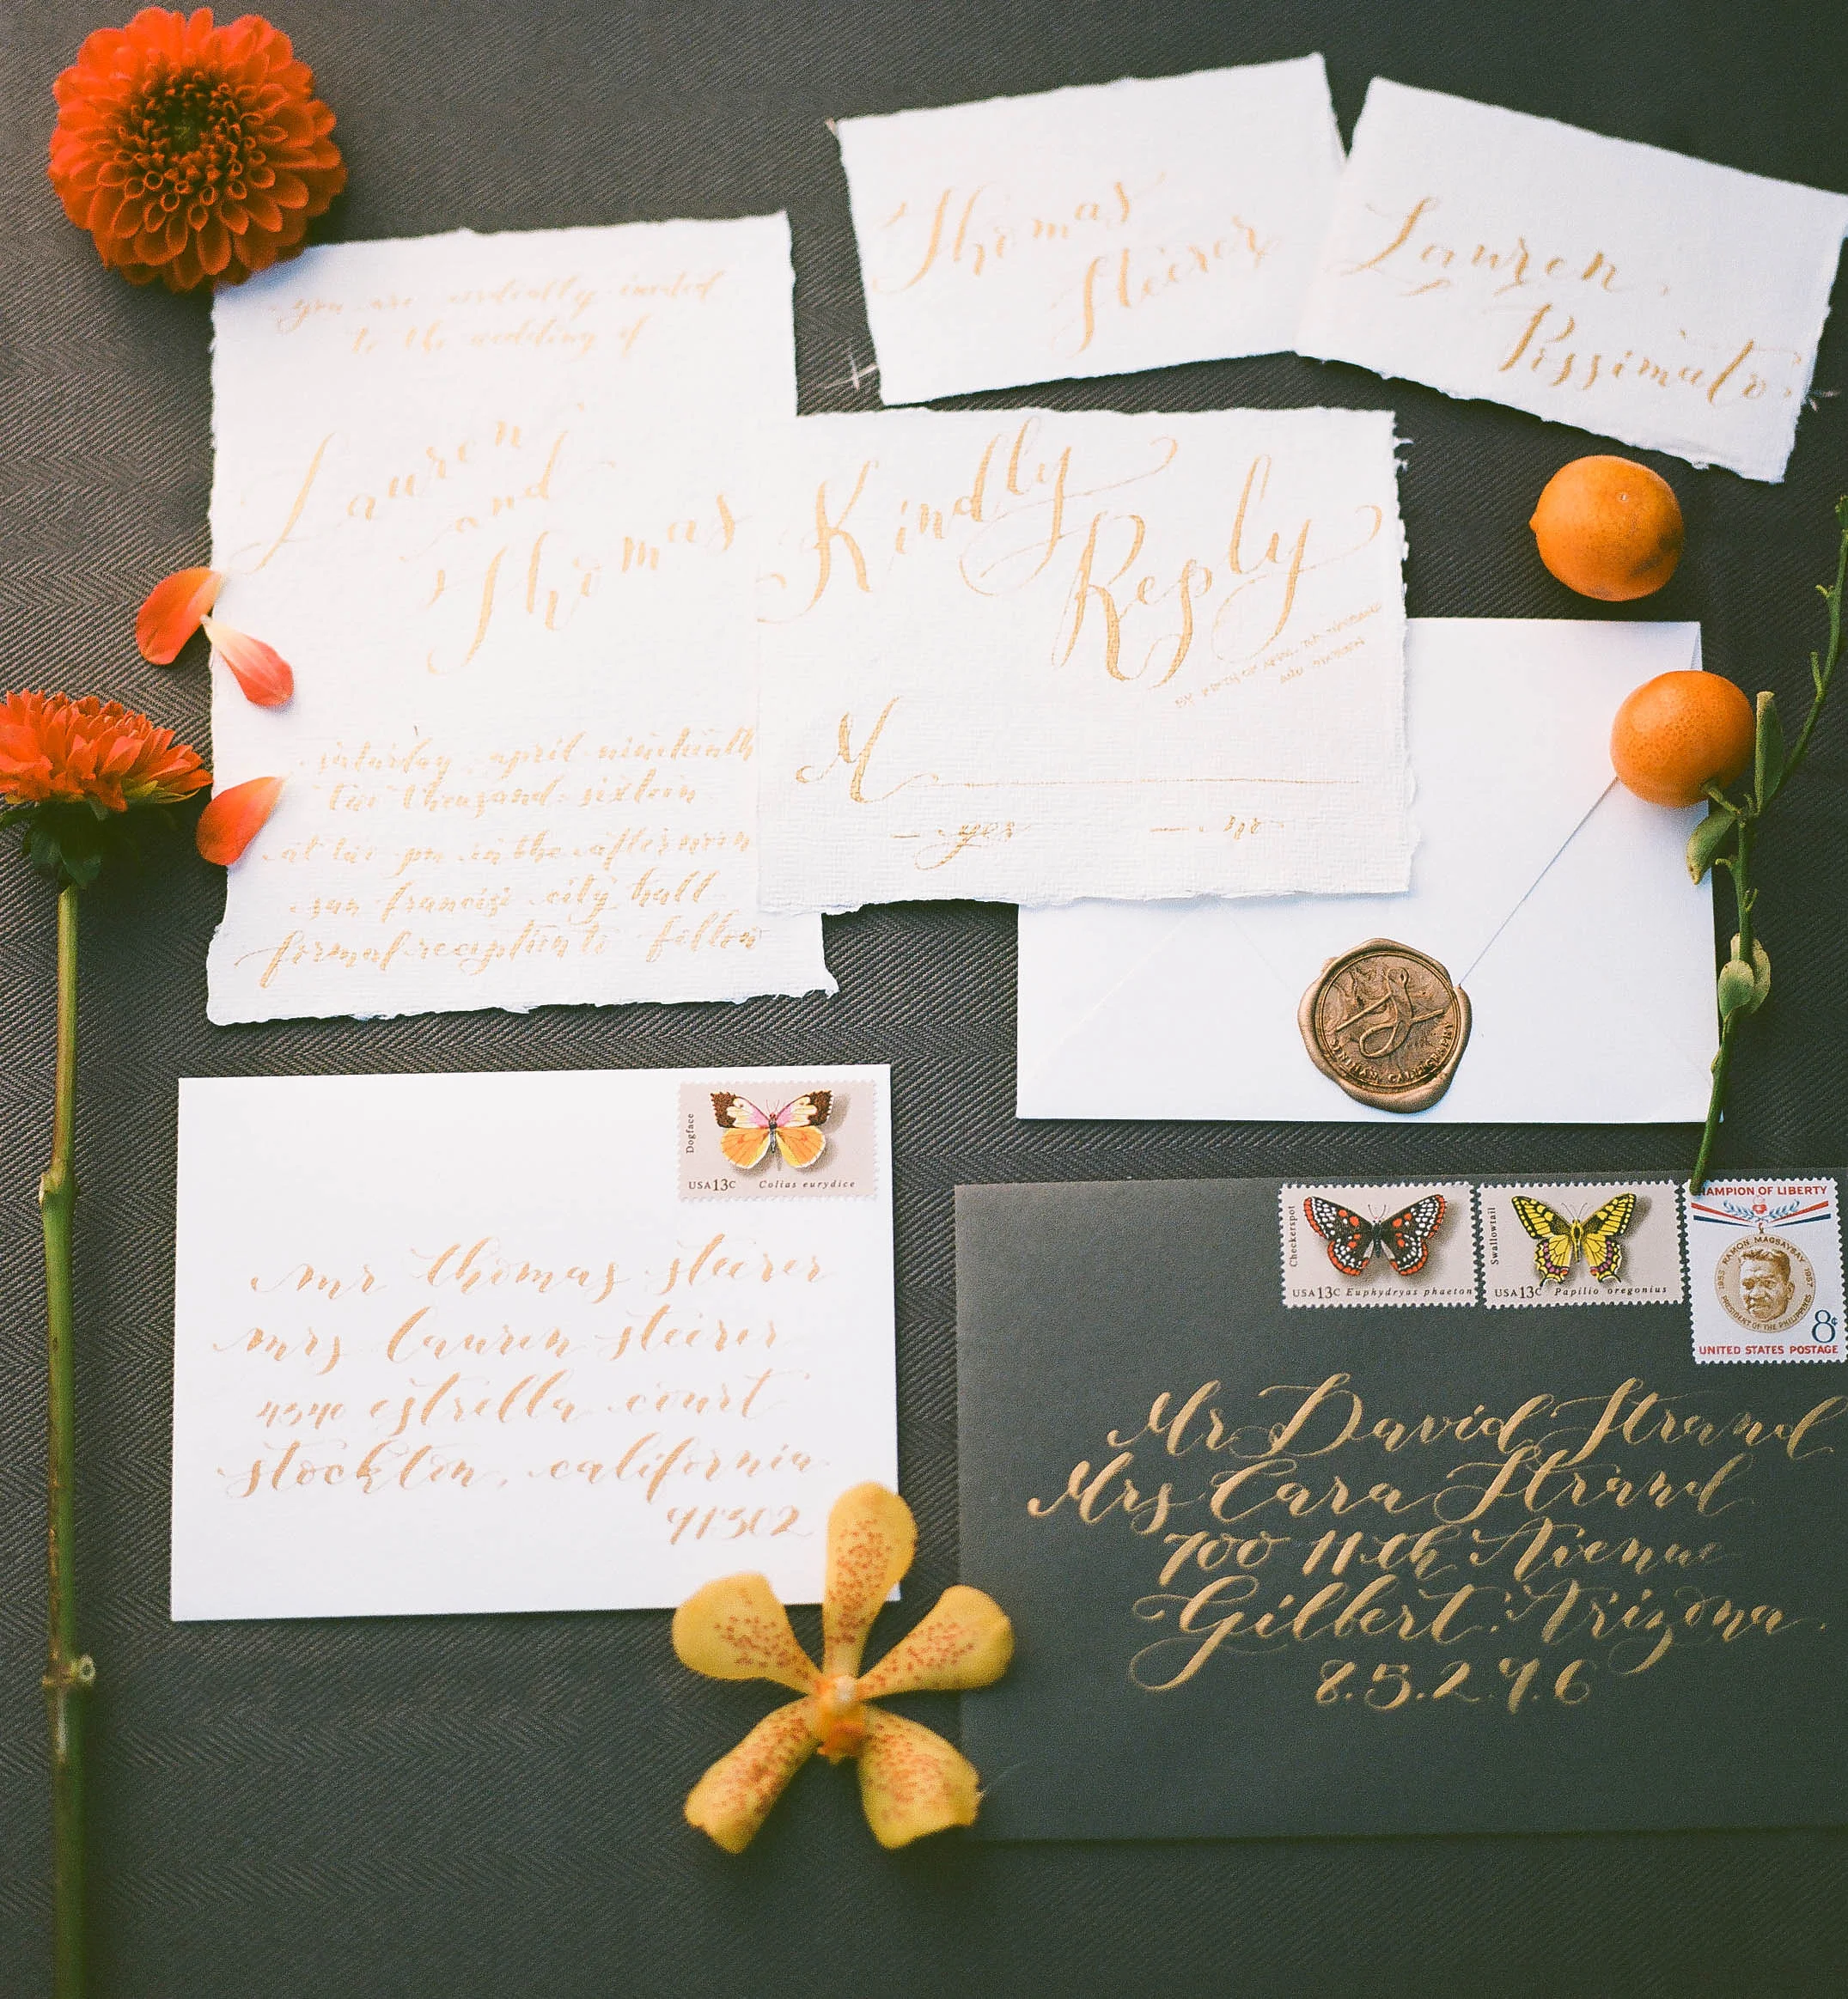 you are cordially invited
to the wedding of
Lauren
and
Thomas
saturday april nineteenth
two thousand sixteen
at two pm in the afternoon
san francisco city hall
formal reception to follow
Thomas
Steirer
Lauren
Possimato
Kindly
Reply
M
yes no
mr thomas steirer
mrs lauren steirer
4540 estrella court
stockton, california
91302
Dogface
USA 13c Colias eurydice
Checkerspot
USA 13c Euphydryas phaeton
Swallowtail
USA 13c Papilio oregonius
CHAMPION OF LIBERTY
RAMON MAGSAYSAY
1953 1957
PRESIDENT OF THE PHILIPPINES
8¢
UNITED STATES POSTAGE
Mr David Strand
Mrs Cara Strand
700 11th Avenue
Gilbert. Arizona.
8.5.2.9.6